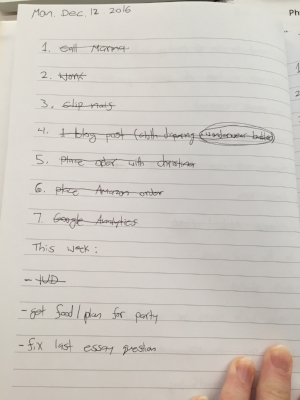 Mon. Dec. 12 2016
Ph
1. call Mamma
2. work
3. clip nails
4. 1 blog post (cloth diapering
5. Place order with christina
6. place Amazon order
7. Google Analytics
This week:
- IUD
- get food/plan for party
- fix last essay question